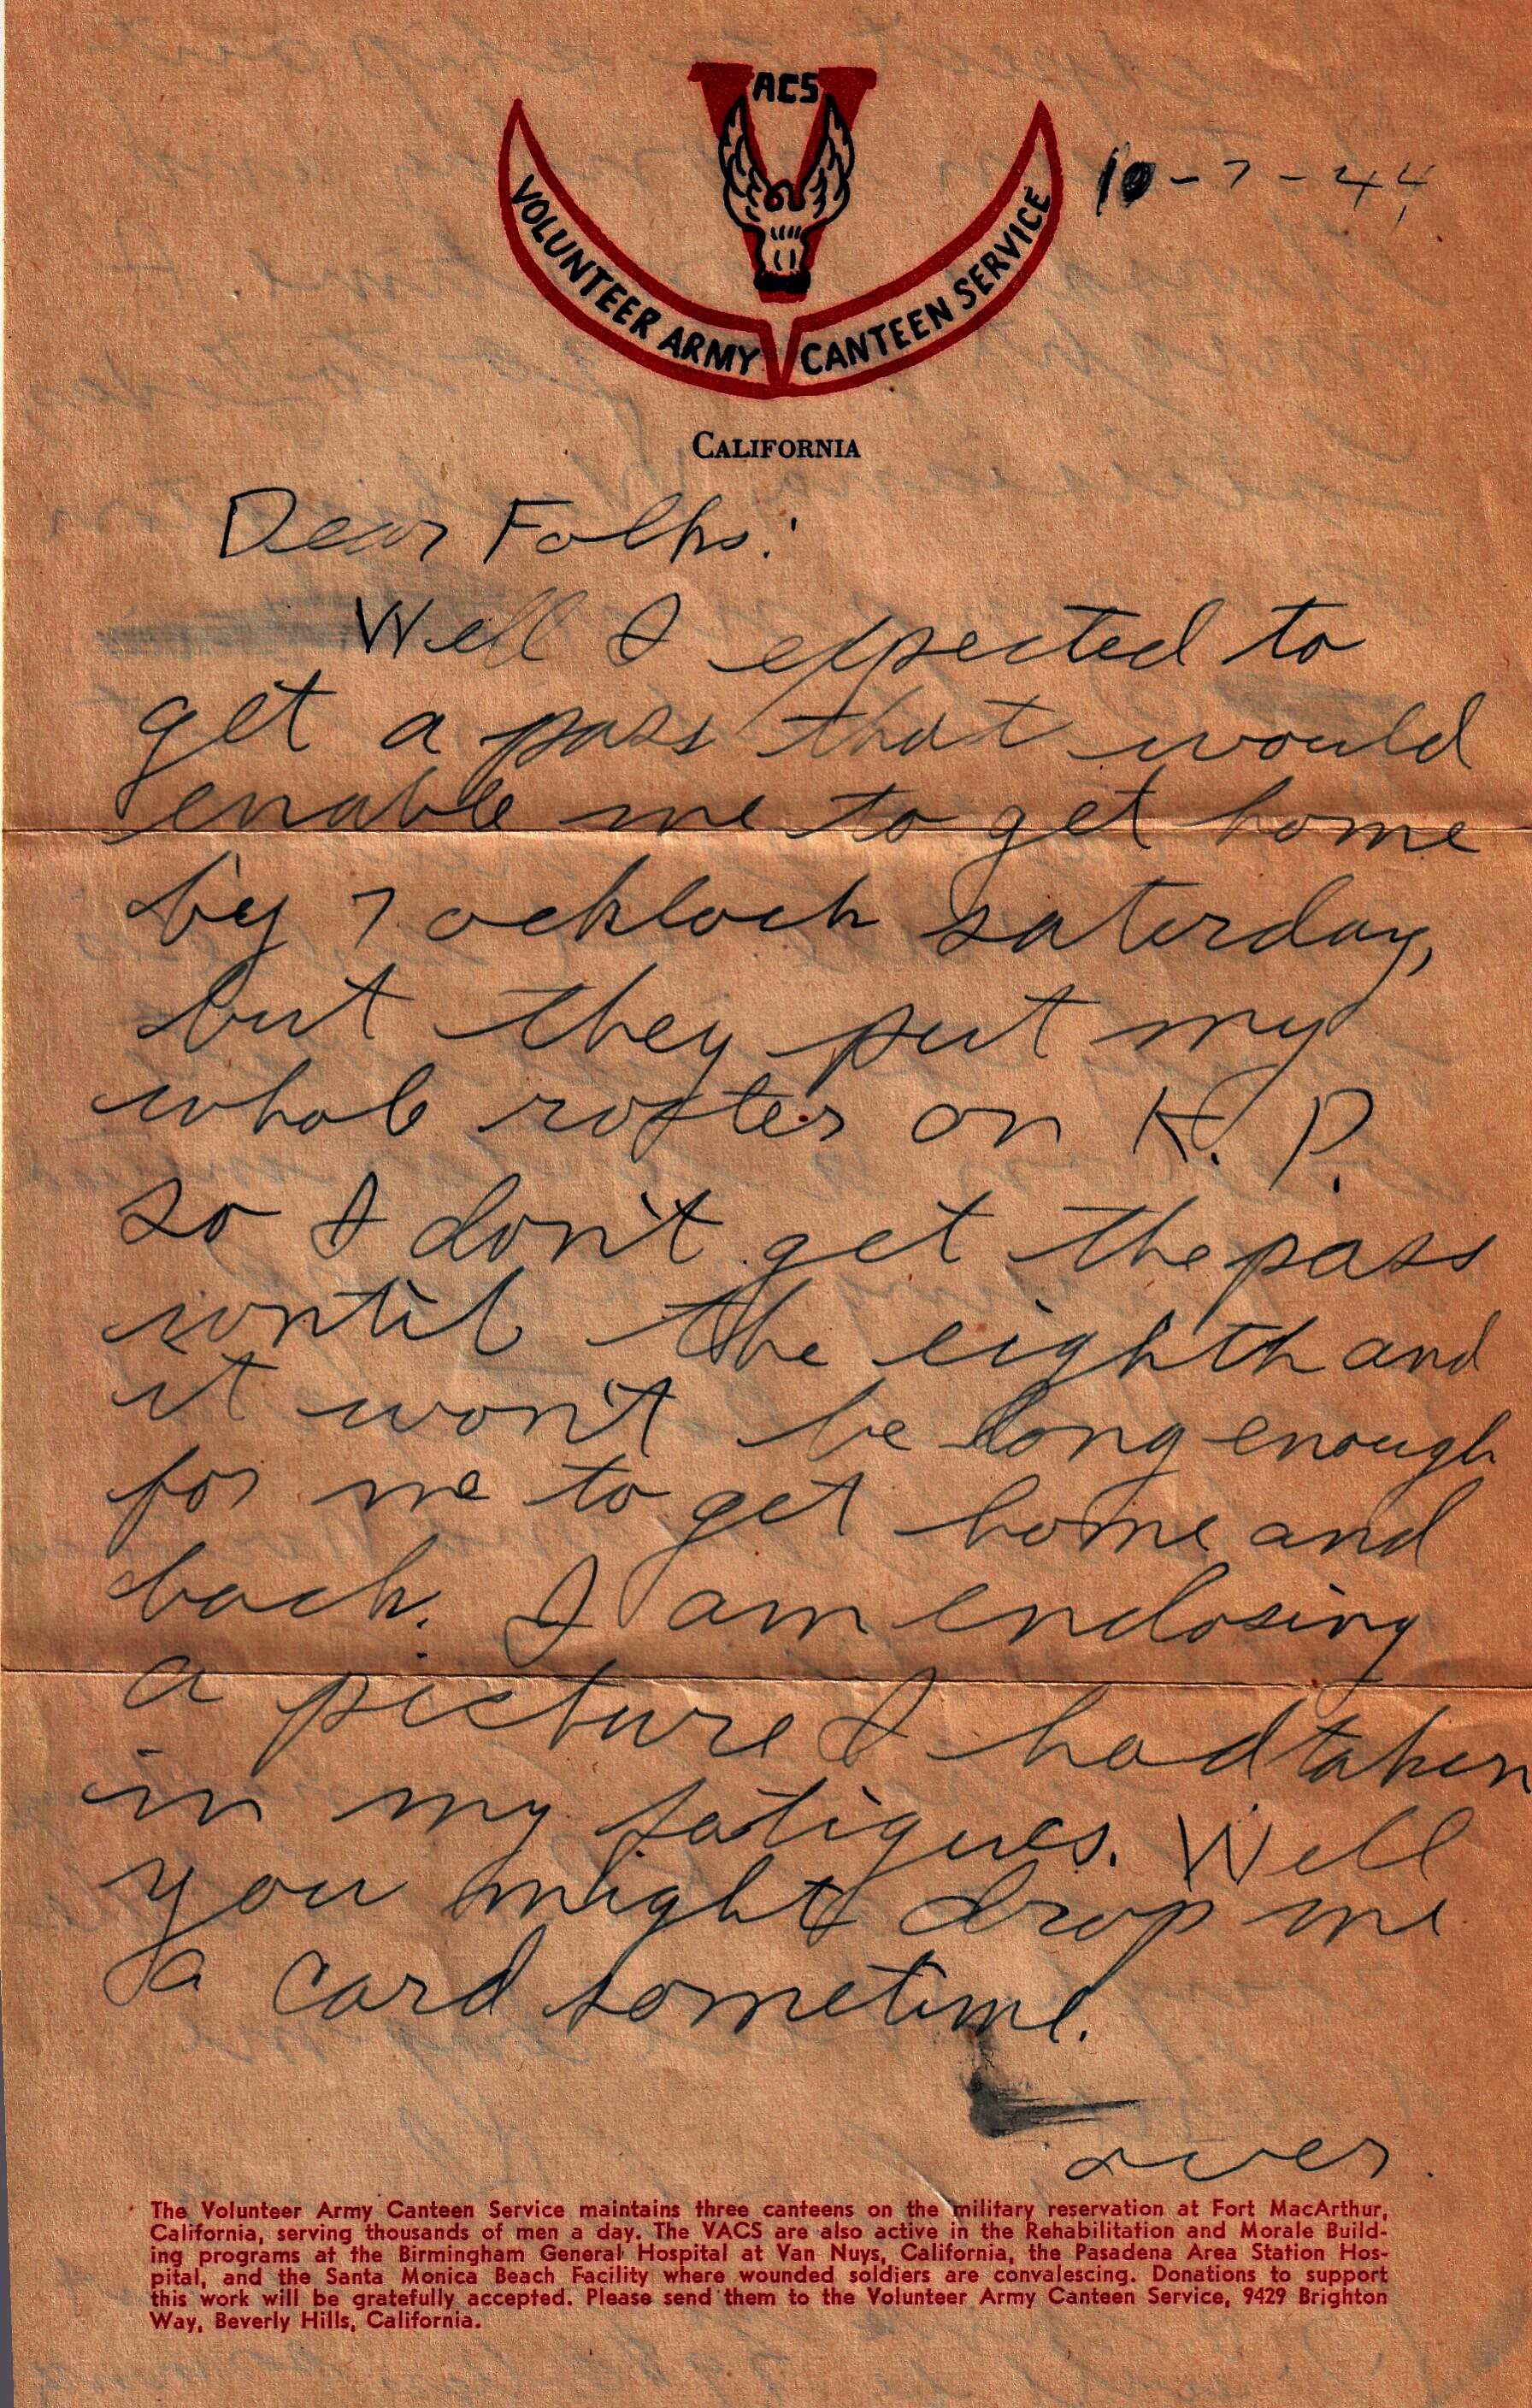 ACS
VOLUNTEER ARMY CANTEEN SERVICE
10-7-44
CALIFORNIA
Dear Folks:
Well I expected to
get a pass that would
enable me to get home
by 7 ocklock saturday,
but they put my
whole roster on K.P.
so I don't get the pass
until the eighth and
it won't be long enough
for me to get home and
back. I am enclosing
a picture I had taken
in my fatigues. Well
you might drop me
a card sometime.
over.
The Volunteer Army Canteen Service maintains three canteens on the military reservation at Fort MacArthur,
California, serving thousands of men a day. The VACS are also active in the Rehabilitation and Morale Build-
ing programs at the Birmingham General Hospital at Van Nuys, California, the Pasadena Area Station Hos-
pital, and the Santa Monica Beach Facility where wounded soldiers are convalescing. Donations to support
this work will be gratefully accepted. Please send them to the Volunteer Army Canteen Service, 9429 Brighton
Way, Beverly Hills, California.